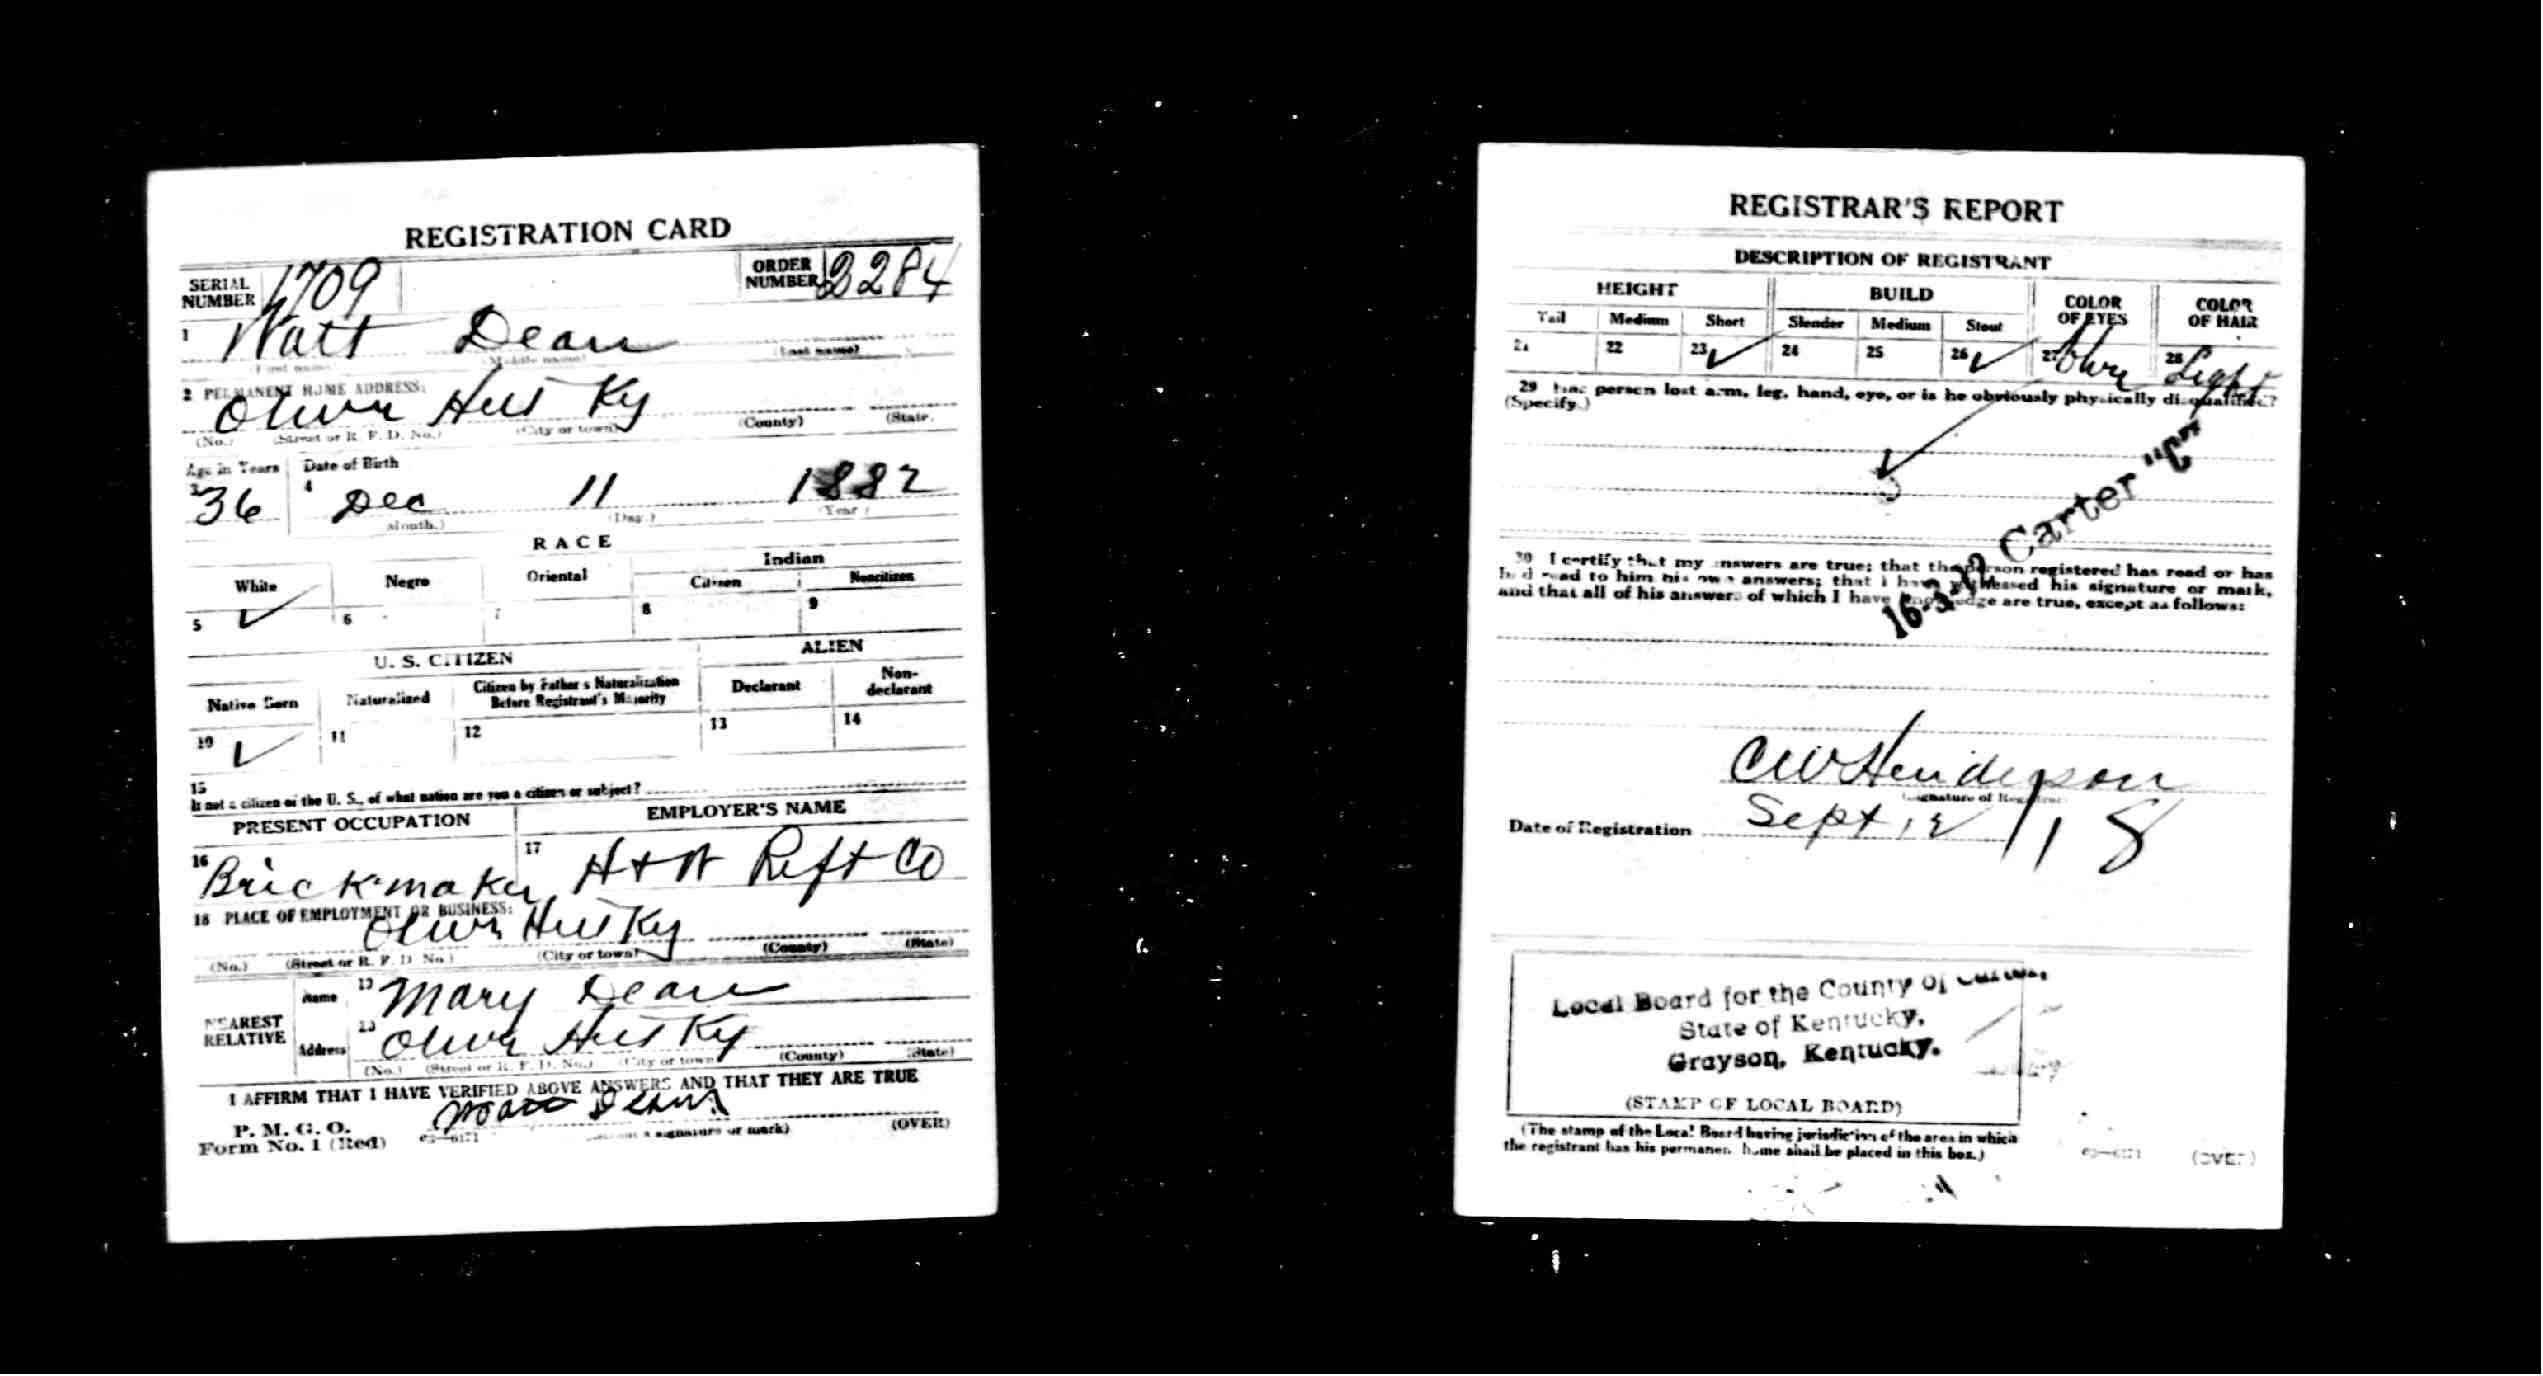 REGISTRATION CARD
SERIAL NUMBER 1709 ORDER NUMBER 3284
1 Watt Dean
(First name) (Middle name) (Last name)
2 PERMANENT HOME ADDRESS:
Olive Hill Ky
(No.) (Street or R. F. D. No.) (City or town) (County) (State)
Age in Years Date of Birth
3 36 4 Dec 11 1882
(Month.) (Day.) (Year)
RACE
White Negro Oriental Indian
Citizen Noncitizen
5 ✓ 6 7 8 9
U. S. CITIZEN ALIEN
Native Born Naturalized Citizen by Father's Naturalization Before Registrant's Majority Declarant Non-declarant
10 ✓ 11 12 13 14
15
If not a citizen of the U. S., of what nation are you a citizen or subject?
PRESENT OCCUPATION EMPLOYER'S NAME
16 Brickmaker 17 H + W Reft Co
18 PLACE OF EMPLOYMENT OR BUSINESS:
Olive Hill Ky
(No.) (Street or R. F. D. No.) (City or town) (County) (State)
NEAREST RELATIVE Name 19 Mary Dean
Address 20 Olive Hill Ky
(No.) (Street or R. F. D. No.) (City or town) (County) (State)
I AFFIRM THAT I HAVE VERIFIED ABOVE ANSWERS AND THAT THEY ARE TRUE
P. M. G. O.
Form No. 1 (Red) Dean
(Registrant's signature or mark) (OVER)
REGISTRAR'S REPORT
DESCRIPTION OF REGISTRANT
HEIGHT BUILD COLOR OF EYES COLOR OF HAIR
Tall Medium Short Slender Medium Stout
21 22 23 ✓ 24 25 26 ✓ 27 Blue 28 Light
29 Has person lost arm, leg, hand, eye, or is he obviously physically disqualified?
(Specify.)
16-3-12 Carter "C"
30 I certify that my answers are true; that the person registered has read or has
had read to him his own answers; that I have witnessed his signature or mark,
and that all of his answers of which I have knowledge are true, except as follows:
CW Henderson
(Signature of Registrar)
Date of Registration Sept 12/18
Local Board for the County of Carter,
State of Kentucky,
Grayson, Kentucky.
(STAMP OF LOCAL BOARD)
(The stamp of the Local Board having jurisdiction of the area in which
the registrant has his permanent home shall be placed in this box.)
(OVER)